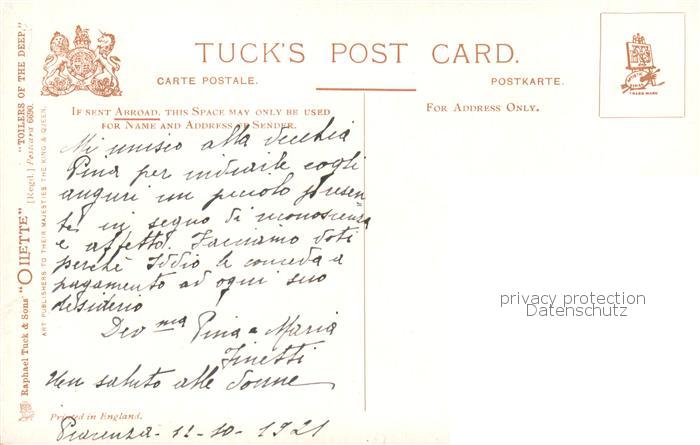 TUCK'S POST CARD.
CARTE POSTALE.
POSTKARTE.
IF SENT ABROAD, THIS SPACE MAY ONLY BE USED
FOR NAME AND ADDRESS OF SENDER.
FOR ADDRESS ONLY.
TRADE MARK
Raphael Tuck & Sons' "OILETTE" [Regd.] Postcard 6690. "TOILERS OF THE DEEP."
ART PUBLISHERS TO THEIR MAJESTIES THE KING & QUEEN.
Mi unisco alla vecchia
Pina per inviarle cogli
auguri un piccolo presen
te in segno di riconoscenza
e affetto. Facciamo voti
perchè Iddio le conceda a
pagamento ad ogni suo
desiderio
Dev ma Pina e Maria
Finetti
Un saluto alle donne
Printed in England.
Piacenza - 11-10-1921
privacy protection
Datenschutz